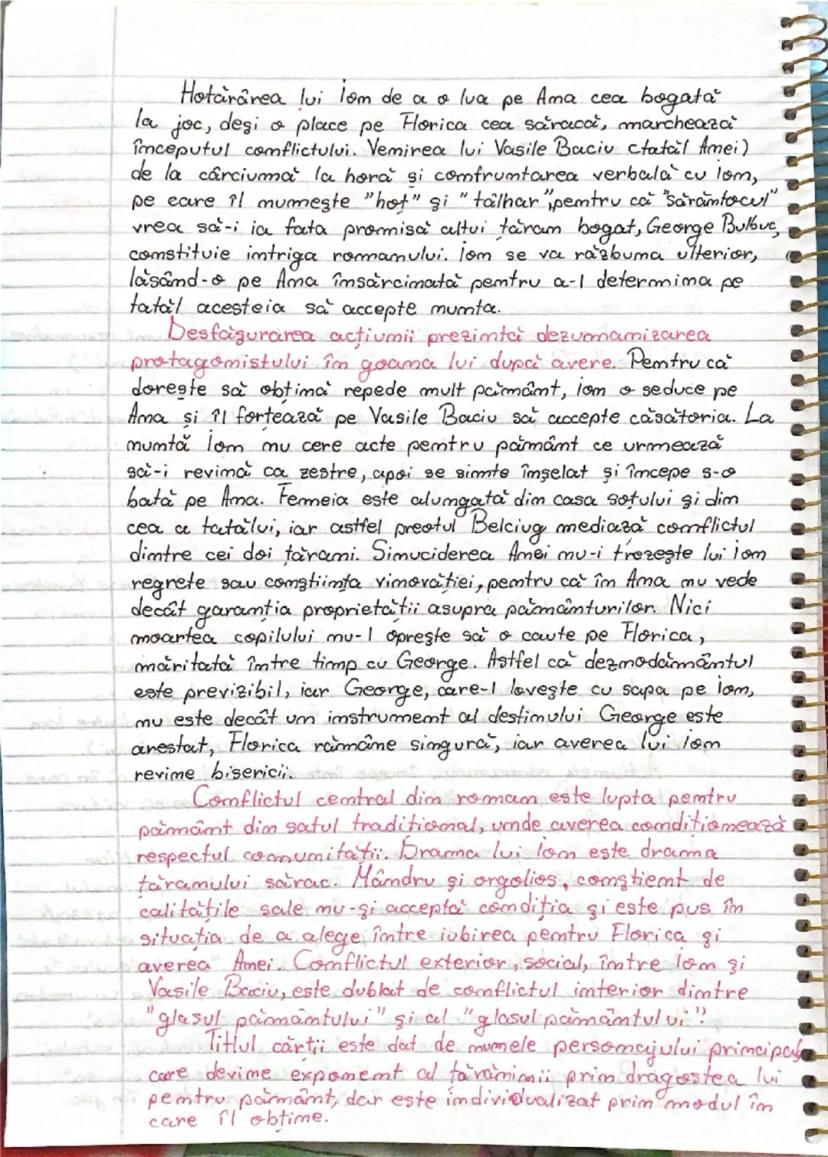 Hotărârea lui Ion de a o lua pe Ana cea bogată
la joc, deși o place pe Florica cea săracă, marchează
începutul conflictului. Venirea lui Vasile Baciu (tatăl Anei)
de la cârciumă la horă și confruntarea verbală cu Ion,
pe care îl numește "hoț" și "tâlhar", pentru că "sărăntocul"
vrea să-i ia fata promisă altui țăran bogat, George Bulbuc,
constituie intriga romanului. Ion se va răzbuna ulterior,
lăsând-o pe Ana însărcinată pentru a-l determina pe
tatăl acesteia să accepte nunta.
Desfășurarea acțiunii prezintă dezumanizarea
protagonistului în goana lui după avere. Pentru că
dorește să obțină repede mult pământ, Ion o seduce pe
Ana și îl forțează pe Vasile Baciu să accepte căsătoria. La
nuntă Ion nu cere acte pentru pământ ce urmează
să-i revină ca zestre, apoi se simte înșelat și începe s-o
bată pe Ana. Femeia este alungată din casa soțului și din
cea a tatălui, iar astfel preotul Belciug mediază conflictul
dintre cei doi țărani. Sinuciderea Anei nu-i trezește lui Ion
regrete sau conștiința vinovăției, pentru că în Ana nu vede
decât garanția proprietății asupra pământurilor. Nici
moartea copilului nu-l oprește să o caute pe Florica,
măritată între timp cu George. Astfel că deznodământul
este previzibil, iar George, care-l lovește cu sapa pe Ion,
nu este decât un instrument al destinului George este
arestat, Florica rămâne singură, iar averea lui Ion
revine bisericii.
Conflictul central din roman este lupta pentru
pământ din satul tradițional, unde averea condiționează
respectul comunității. Drama lui Ion este drama
țăranului sărac. Mândru și orgolios, conștient de
calitățile sale nu-și acceptă condiția și este pus în
situația de a alege între iubirea pentru Florica și
averea Anei. Conflictul exterior, social, între Ion și
Vasile Baciu, este dublat de conflictul interior dintre
"glasul pământului" și al "glasul pământului".
Titlul cărții este dat de numele personajului principal,
care devine exponent al țărănimii prin dragostea lui
pentru pământ, dar este individualizat prin modul în
care îl obține.